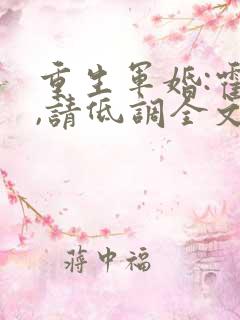 重生軍婚:霍
,請低調全文
蔣中福